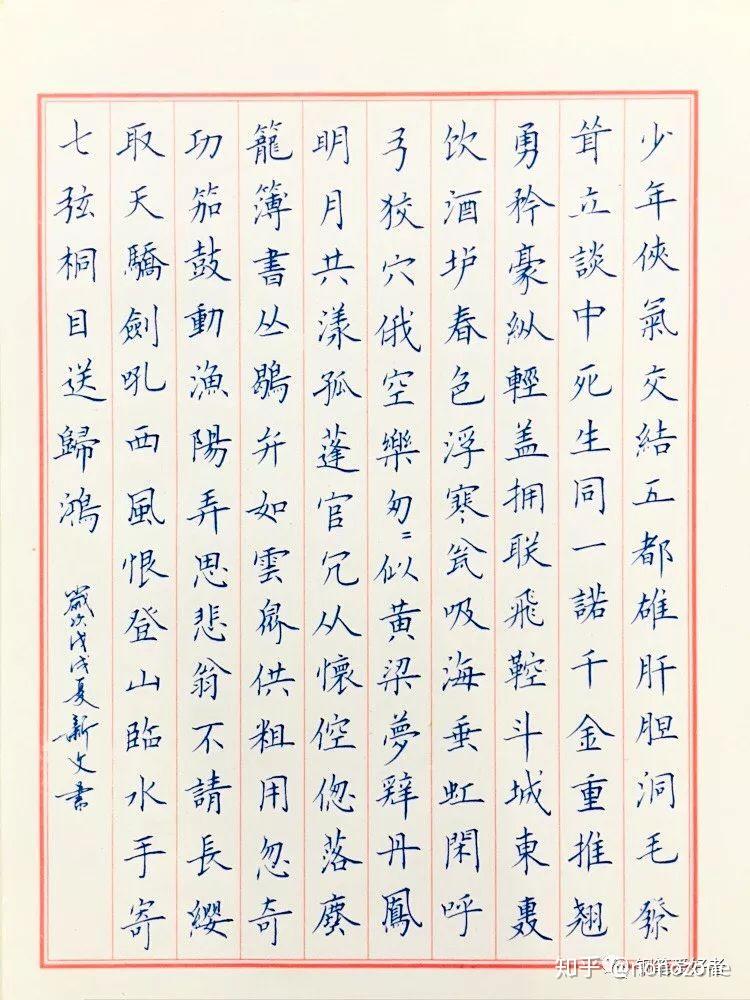 少年俠氣交結五都雄肝胆洞毛發
耸立談中死生同一諾千金重推翘
勇矜豪纵輕盖拥联飛鞚斗城東轰
饮酒垆春色浮寒瓮吸海垂虹閑呼
弓狡穴俄空樂匆〻似黄梁夢辤丹鳳
明月共漾孤蓬官冗从懷倥偬落塵
籠簿書丛鶡弁如雲衆供粗用忽奇
功笳鼓動漁陽弄思悲翁不請長纓
取天驕劍吼西風恨登山臨水手寄
七弦桐目送歸鴻 歲次戊戌夏新文書
知乎 @nonozone